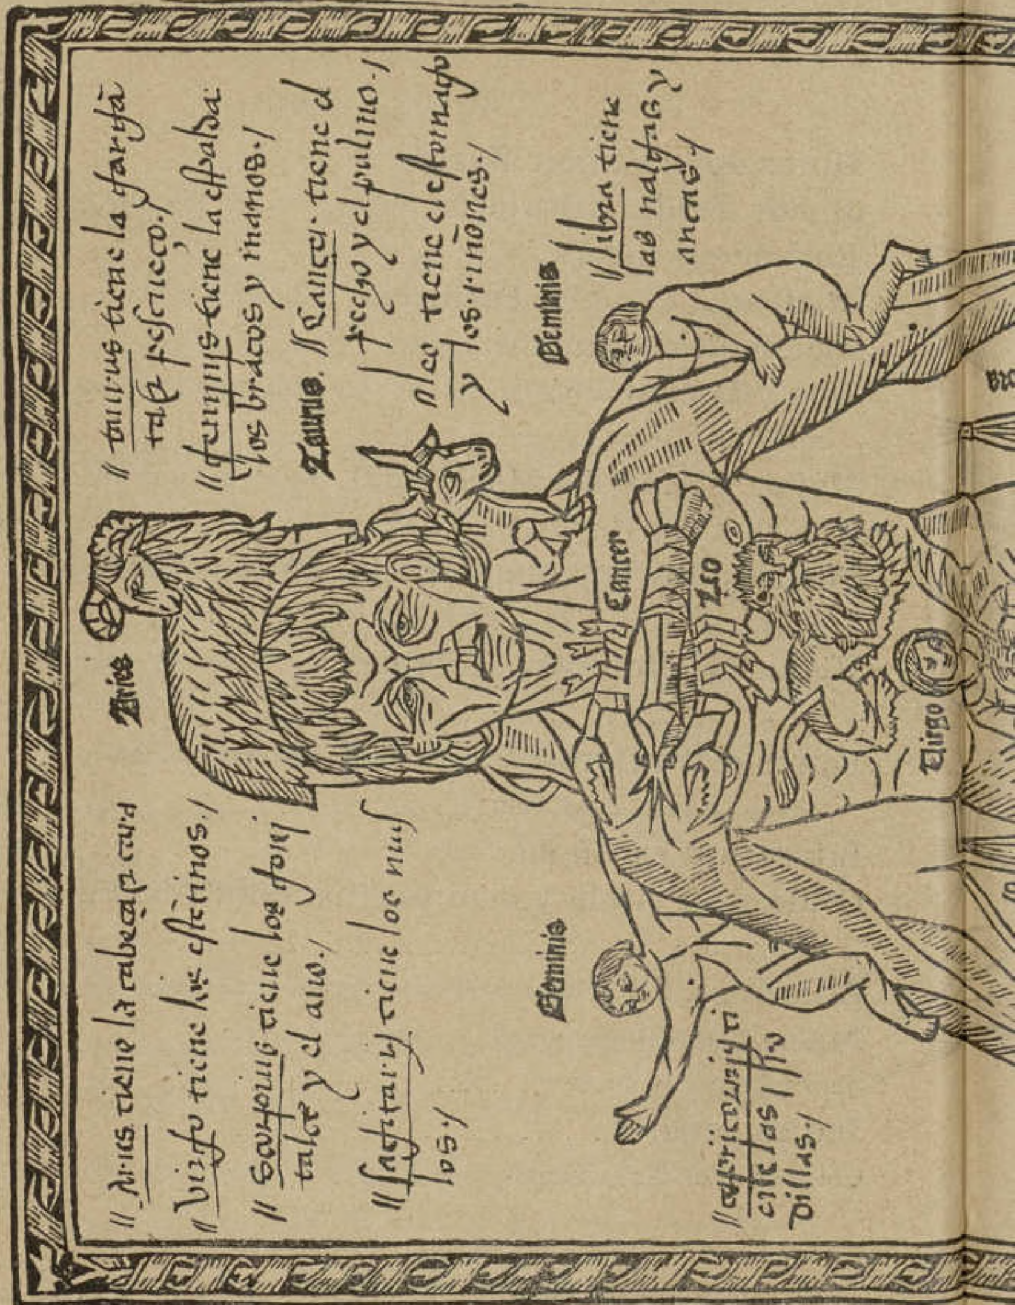 // Aries tiene la cabeça p cara
// Virgo tiene los estētinos./
// Scorpius tiene los geni
tales y el ano./
// sagitarius tiene los mus
los./
Aries
// taurus tiene la gargā
ta p pescueço./
// geminys tiene la espalda
los braços y manos./
Taurus
// Cancer tiene el
pecho y el pulmo./
// leo tiene el estomago
y los riñones./
Geminis
Geminis
// libra tiene
las nalgas y
ancas./
Cancer
Leo
Virgo
dillas./